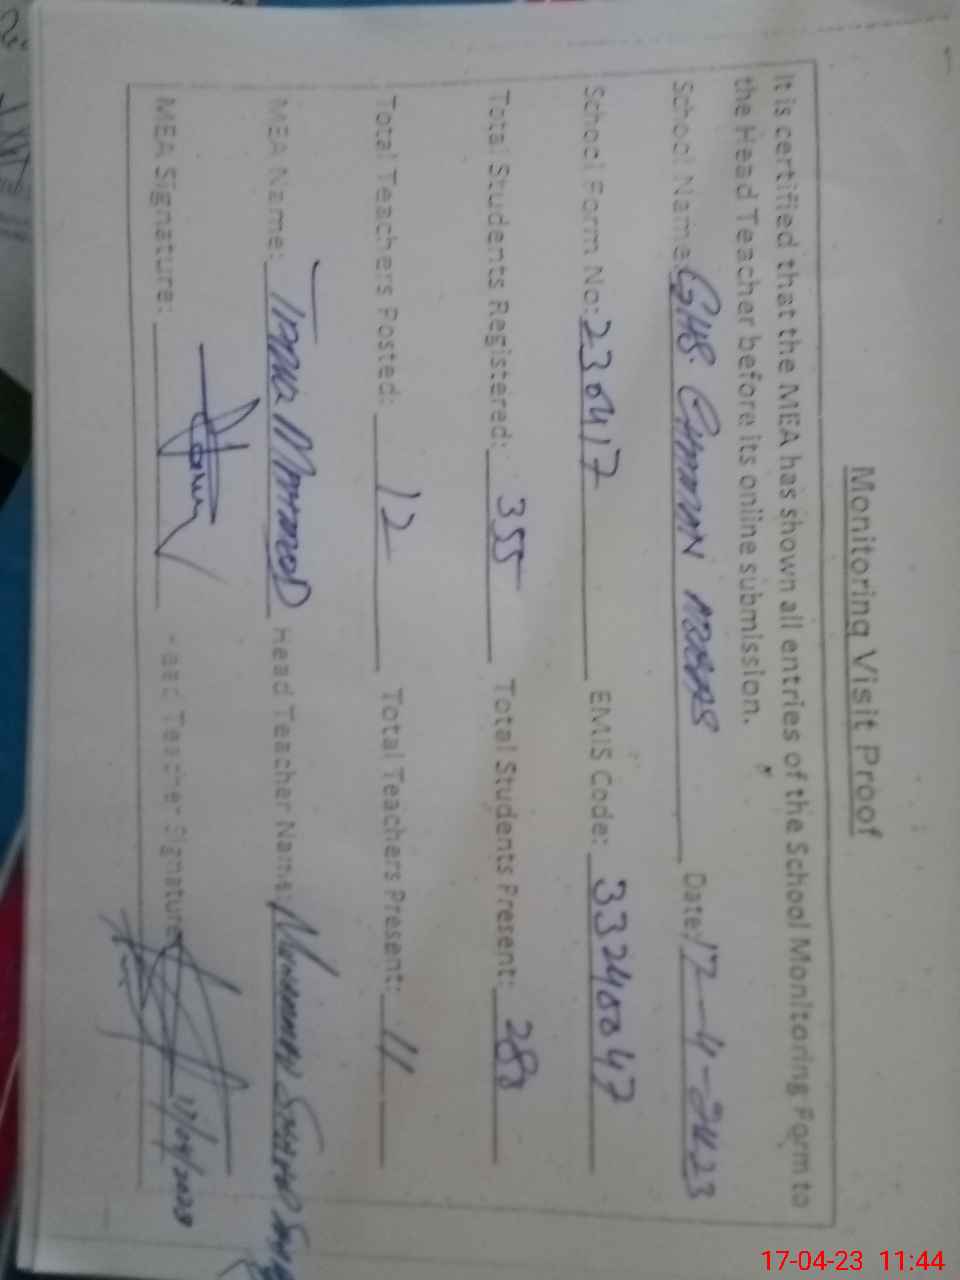 Monitoring Visit Proof
It is certified that the MEA has shown all entries of the School Monitoring Form to
the Head Teacher before its online submission.
School Name: GHS. Date: 17-4-2023
School Form No: 230417 EMIS Code: 33240047
Total Students Registered: 355 Total Students Present: 280
Total Teachers Posted: 12 Total Teachers Present: 11
MEA Name: Tariq Mahmood Head Teacher Name: Muhammad
MEA Signature: Head Teacher Signature 17/04/2023
17-04-23 11:44